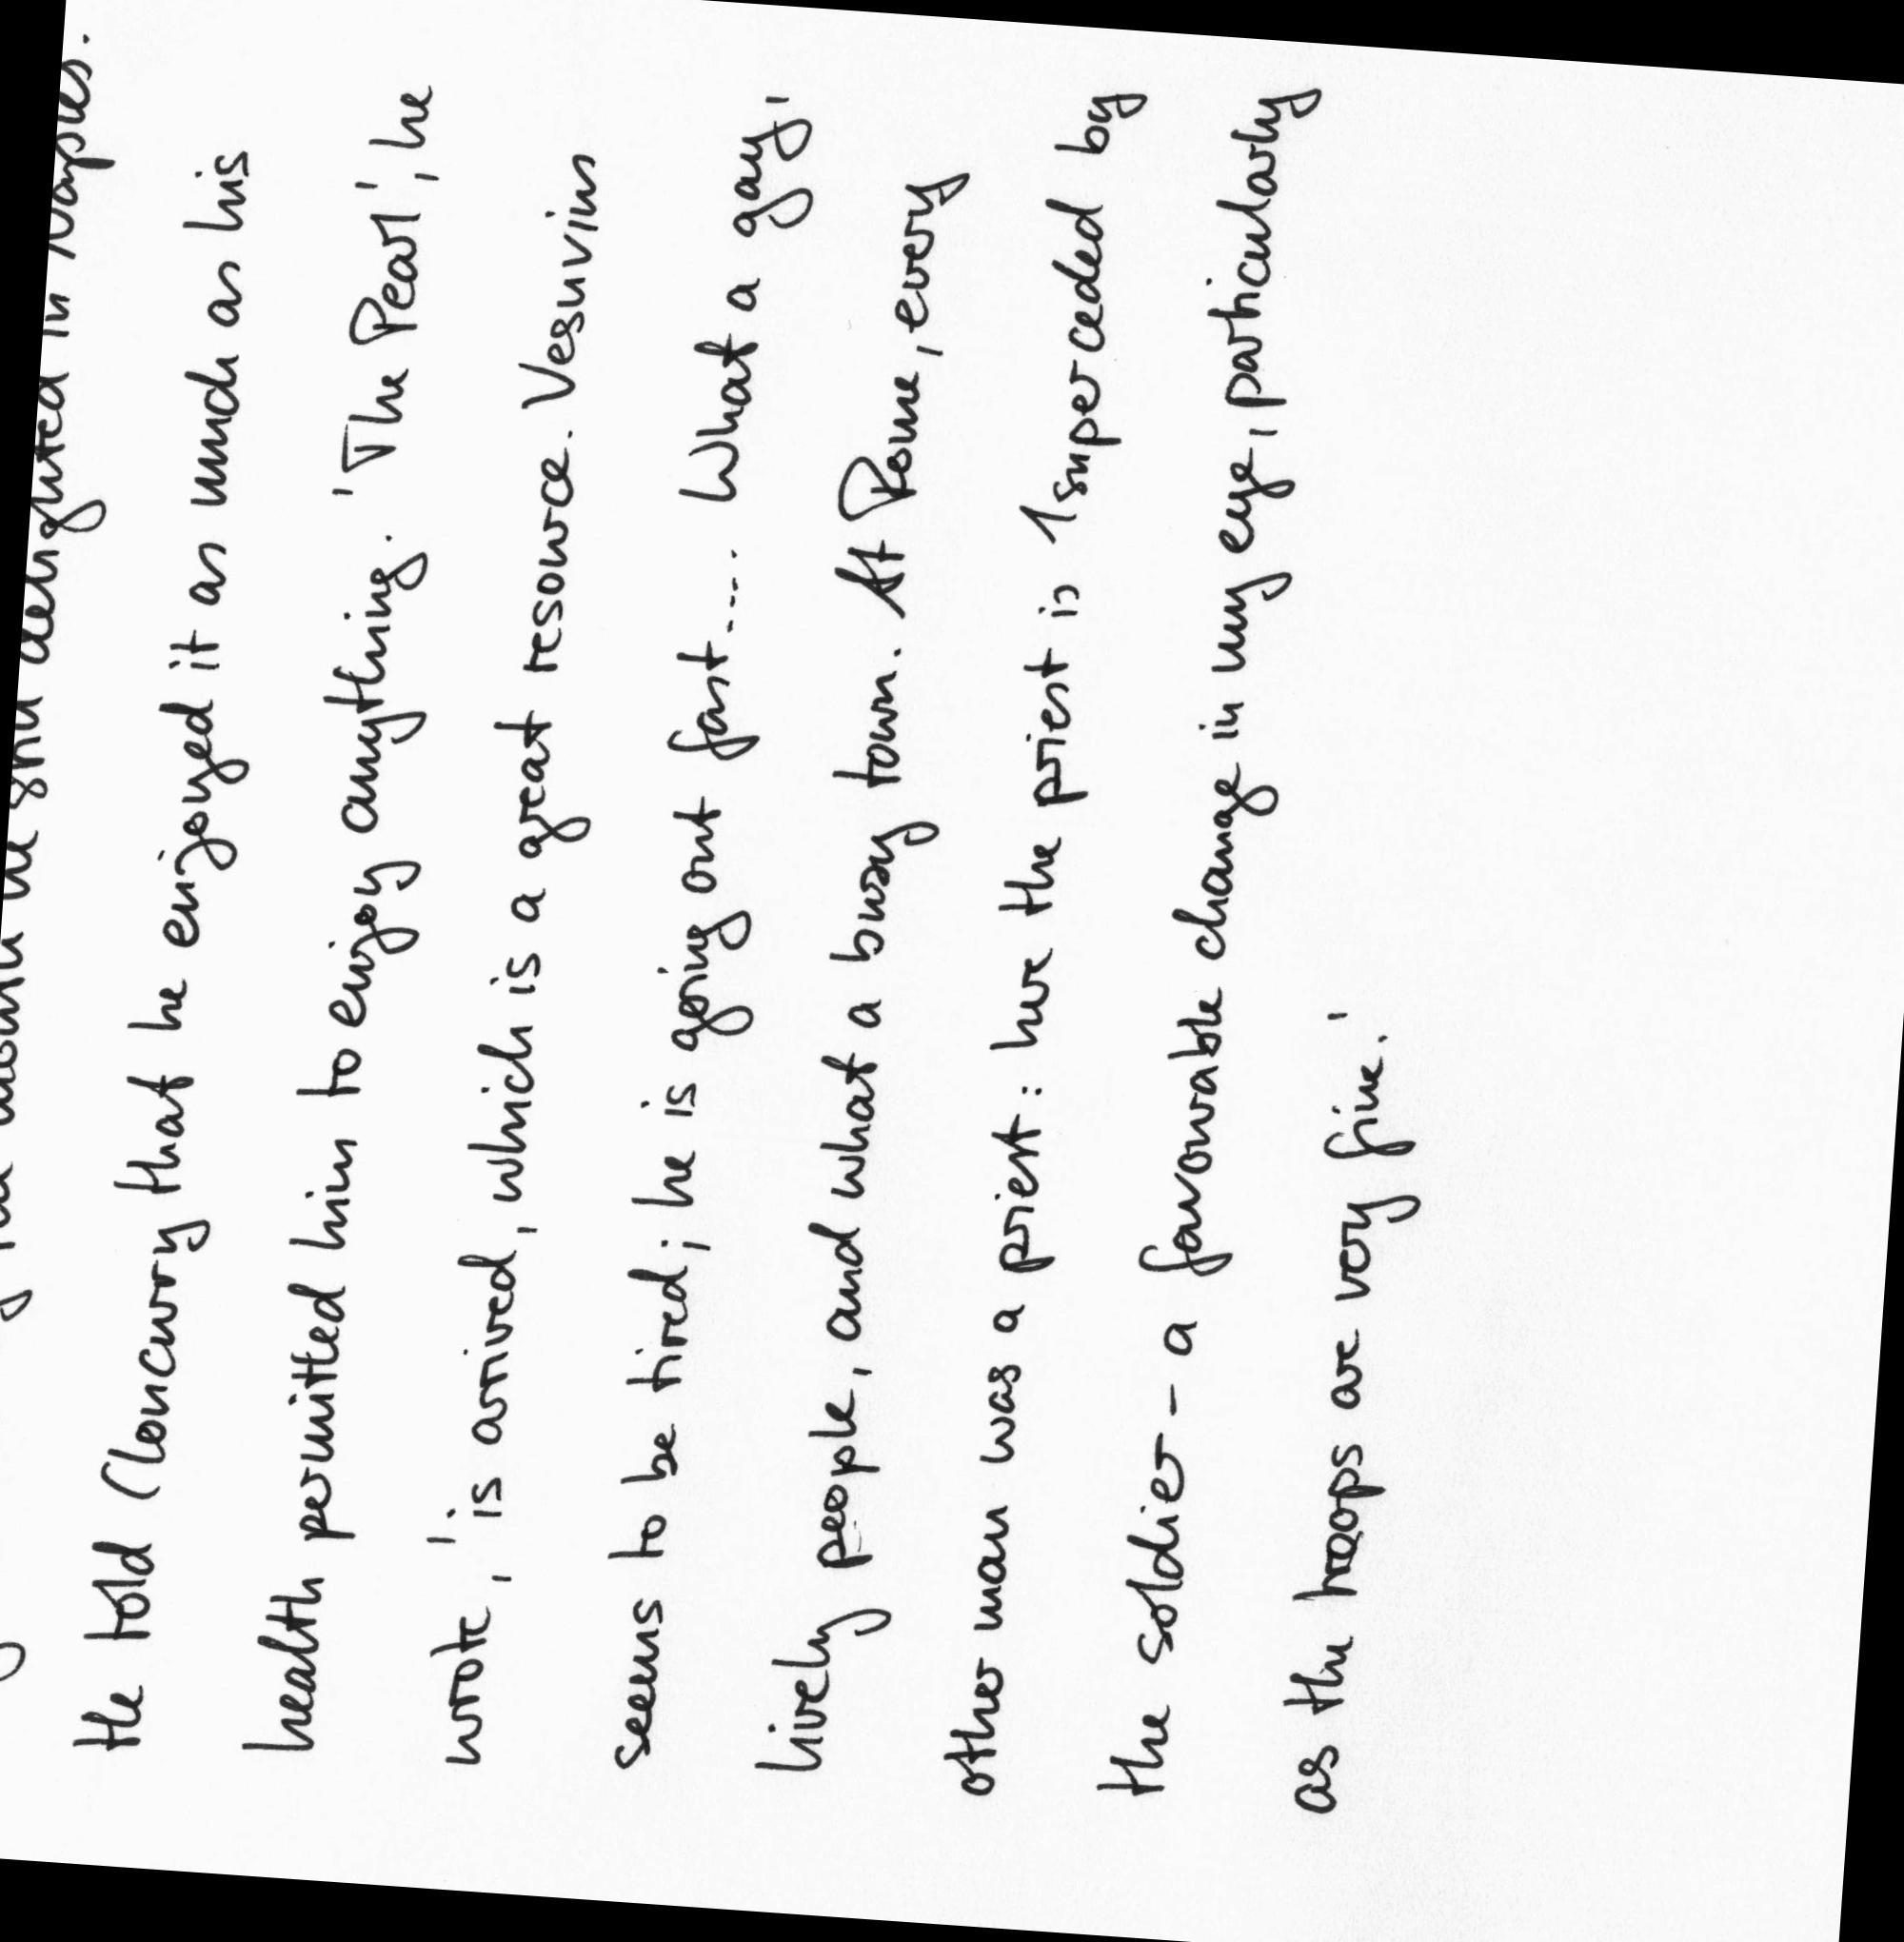 he still delighted in Naples.
He told Cloncurry that he enjoyed it as much as his
health permitted him to enjoy anything. 'The Pearl', he
wrote, 'is arrived, which is a great resource. Vesuvius
seems to be tired; he is going out fast.... What a gay,
lively people, and what a busy town. At Rome, every
other man was a priest: here the priest is superceded by
the soldier - a favourable change in my eye, particularly
as the troops are very fine.'